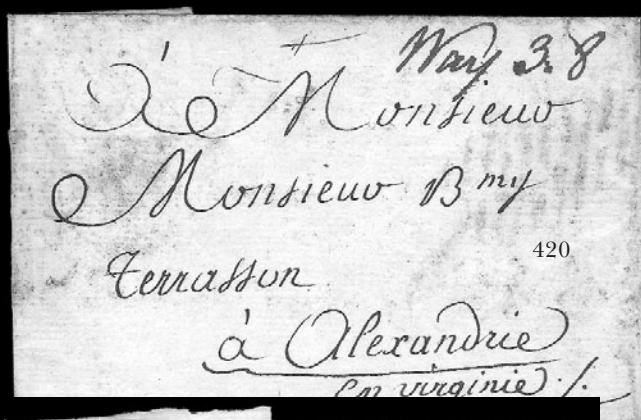 Way 3.8
À Monsieur
Monsieur Bmy
420
Terrasson
à Alexandrie
En virginie ./.